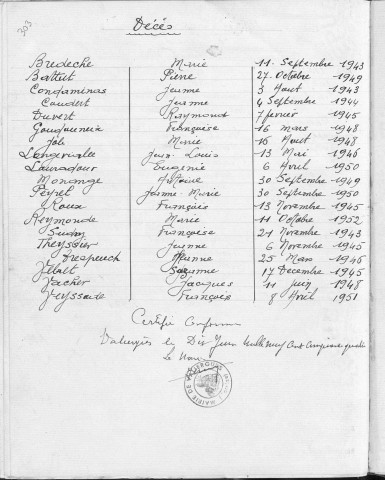 303
Décès
Bredèche Marie 11 Septembre 1943
Battut Pierre 27 Octobre 1949
Condaminas Jeanne 3 Aout 1943
Coudert Jeanne 4 Septembre 1944
Duvert Raymond 7 février 1945
Françoise 16 mars 1948
Marie 16 Aout 1948
Jean Louis 13 Mai 1946
Lauradour Eugénie 6 Avril 1950
Monange 30 Septembre 1949
Peyret Jeanne Marie 30 Septembre 1950
Roux François 13 Novembre 1945
Reymonde Marie 11 Octobre 1952
Françoise 21 Novembre 1943
Theyssier Jeanne 6 Novembre 1945
Trespeuch 25 Mars 1946
Suzanne 17 Décembre 1945
Vacher Jacques 11 juin 1948
Veyssade François 8 Avril 1951
Certifié Conforme
Valuergues le Dix Juin Mille neuf Cent Cinquante quatre
Le Maire
MAIRIE DE